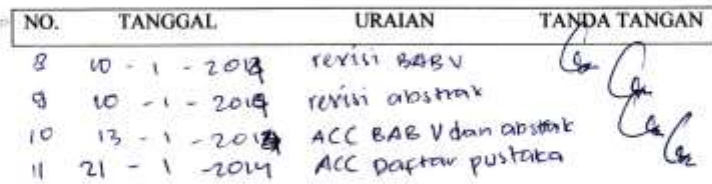 NO. TANGGAL URAIAN TANDA TANGAN
8 10 - 1 - 2014 revisi BAB V
9 10 - 1 - 2014 revisi abstrak
10 13 - 1 - 2014 ACC BAB V dan abstrak
11 21 - 1 - 2014 ACC Daftar pustaka